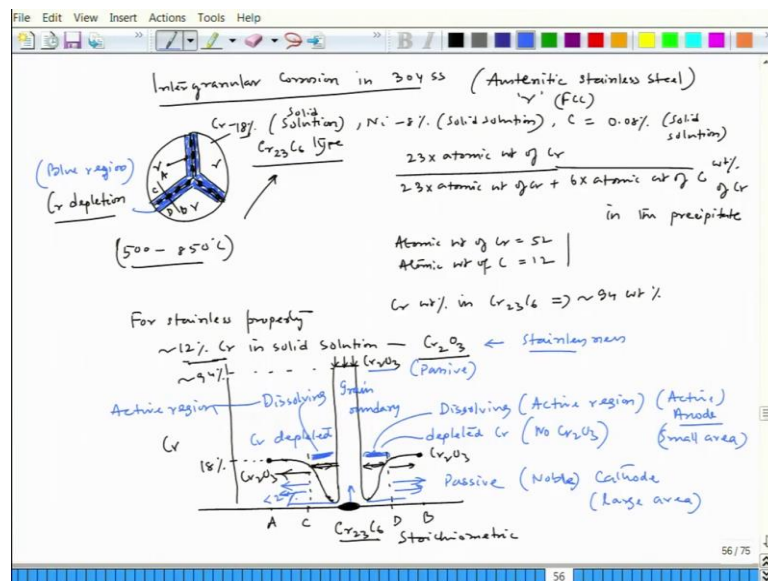 File Edit View Insert Actions Tools Help
Intergranular Corrosion in 304 SS (Austenitic stainless steel)
'γ' (FCC)
Cr-18% (Solid solution), Ni-8% (Solid solution), C = 0.08% (Solid solution)
Cr23C6 type
(Blue region)
Cr depletion
γ
A
γ
C
D
B
γ
(500-850°C)
23x atomic wt of Cr
23x atomic wt of Cr + 6x atomic wt of C
wt% of Cr
in the precipitate
Atomic wt of Cr = 52
Atomic wt of C = 12
Cr wt% in Cr23C6 => ~94 wt%
For stainless property
~12% Cr in solid solution — Cr2O3 ← Stainlessness
~94%
Cr2O3
(Passive)
Active region
Dissolving
Grain boundary
Dissolving (Active region) (Active)
Anode
Cr depleted
depleted Cr (No Cr2O3)
(Small area)
Cr
18%
Cr2O3
Cr2O3
Passive (Noble) Cathode
(Large area)
<2%
A C Cr23C6 D B
Stoichiometric
56 / 75
56